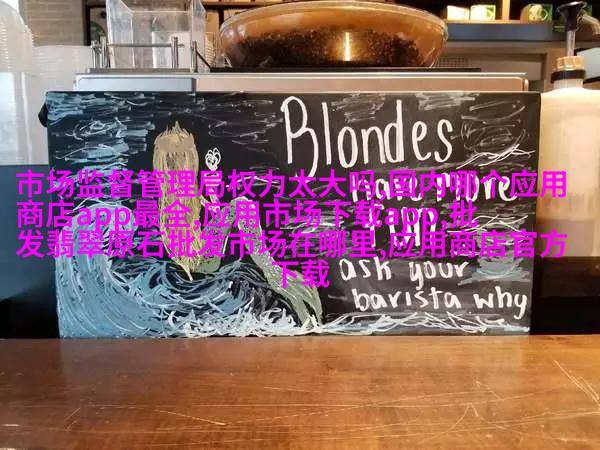 Blondes
have more
ask your
barista why
市场监督管理局权力太大吗,国内哪个应用
商店app最全,应用市场下载app,批
发翡翠原石批发市场在哪里,应用商店官方
下载